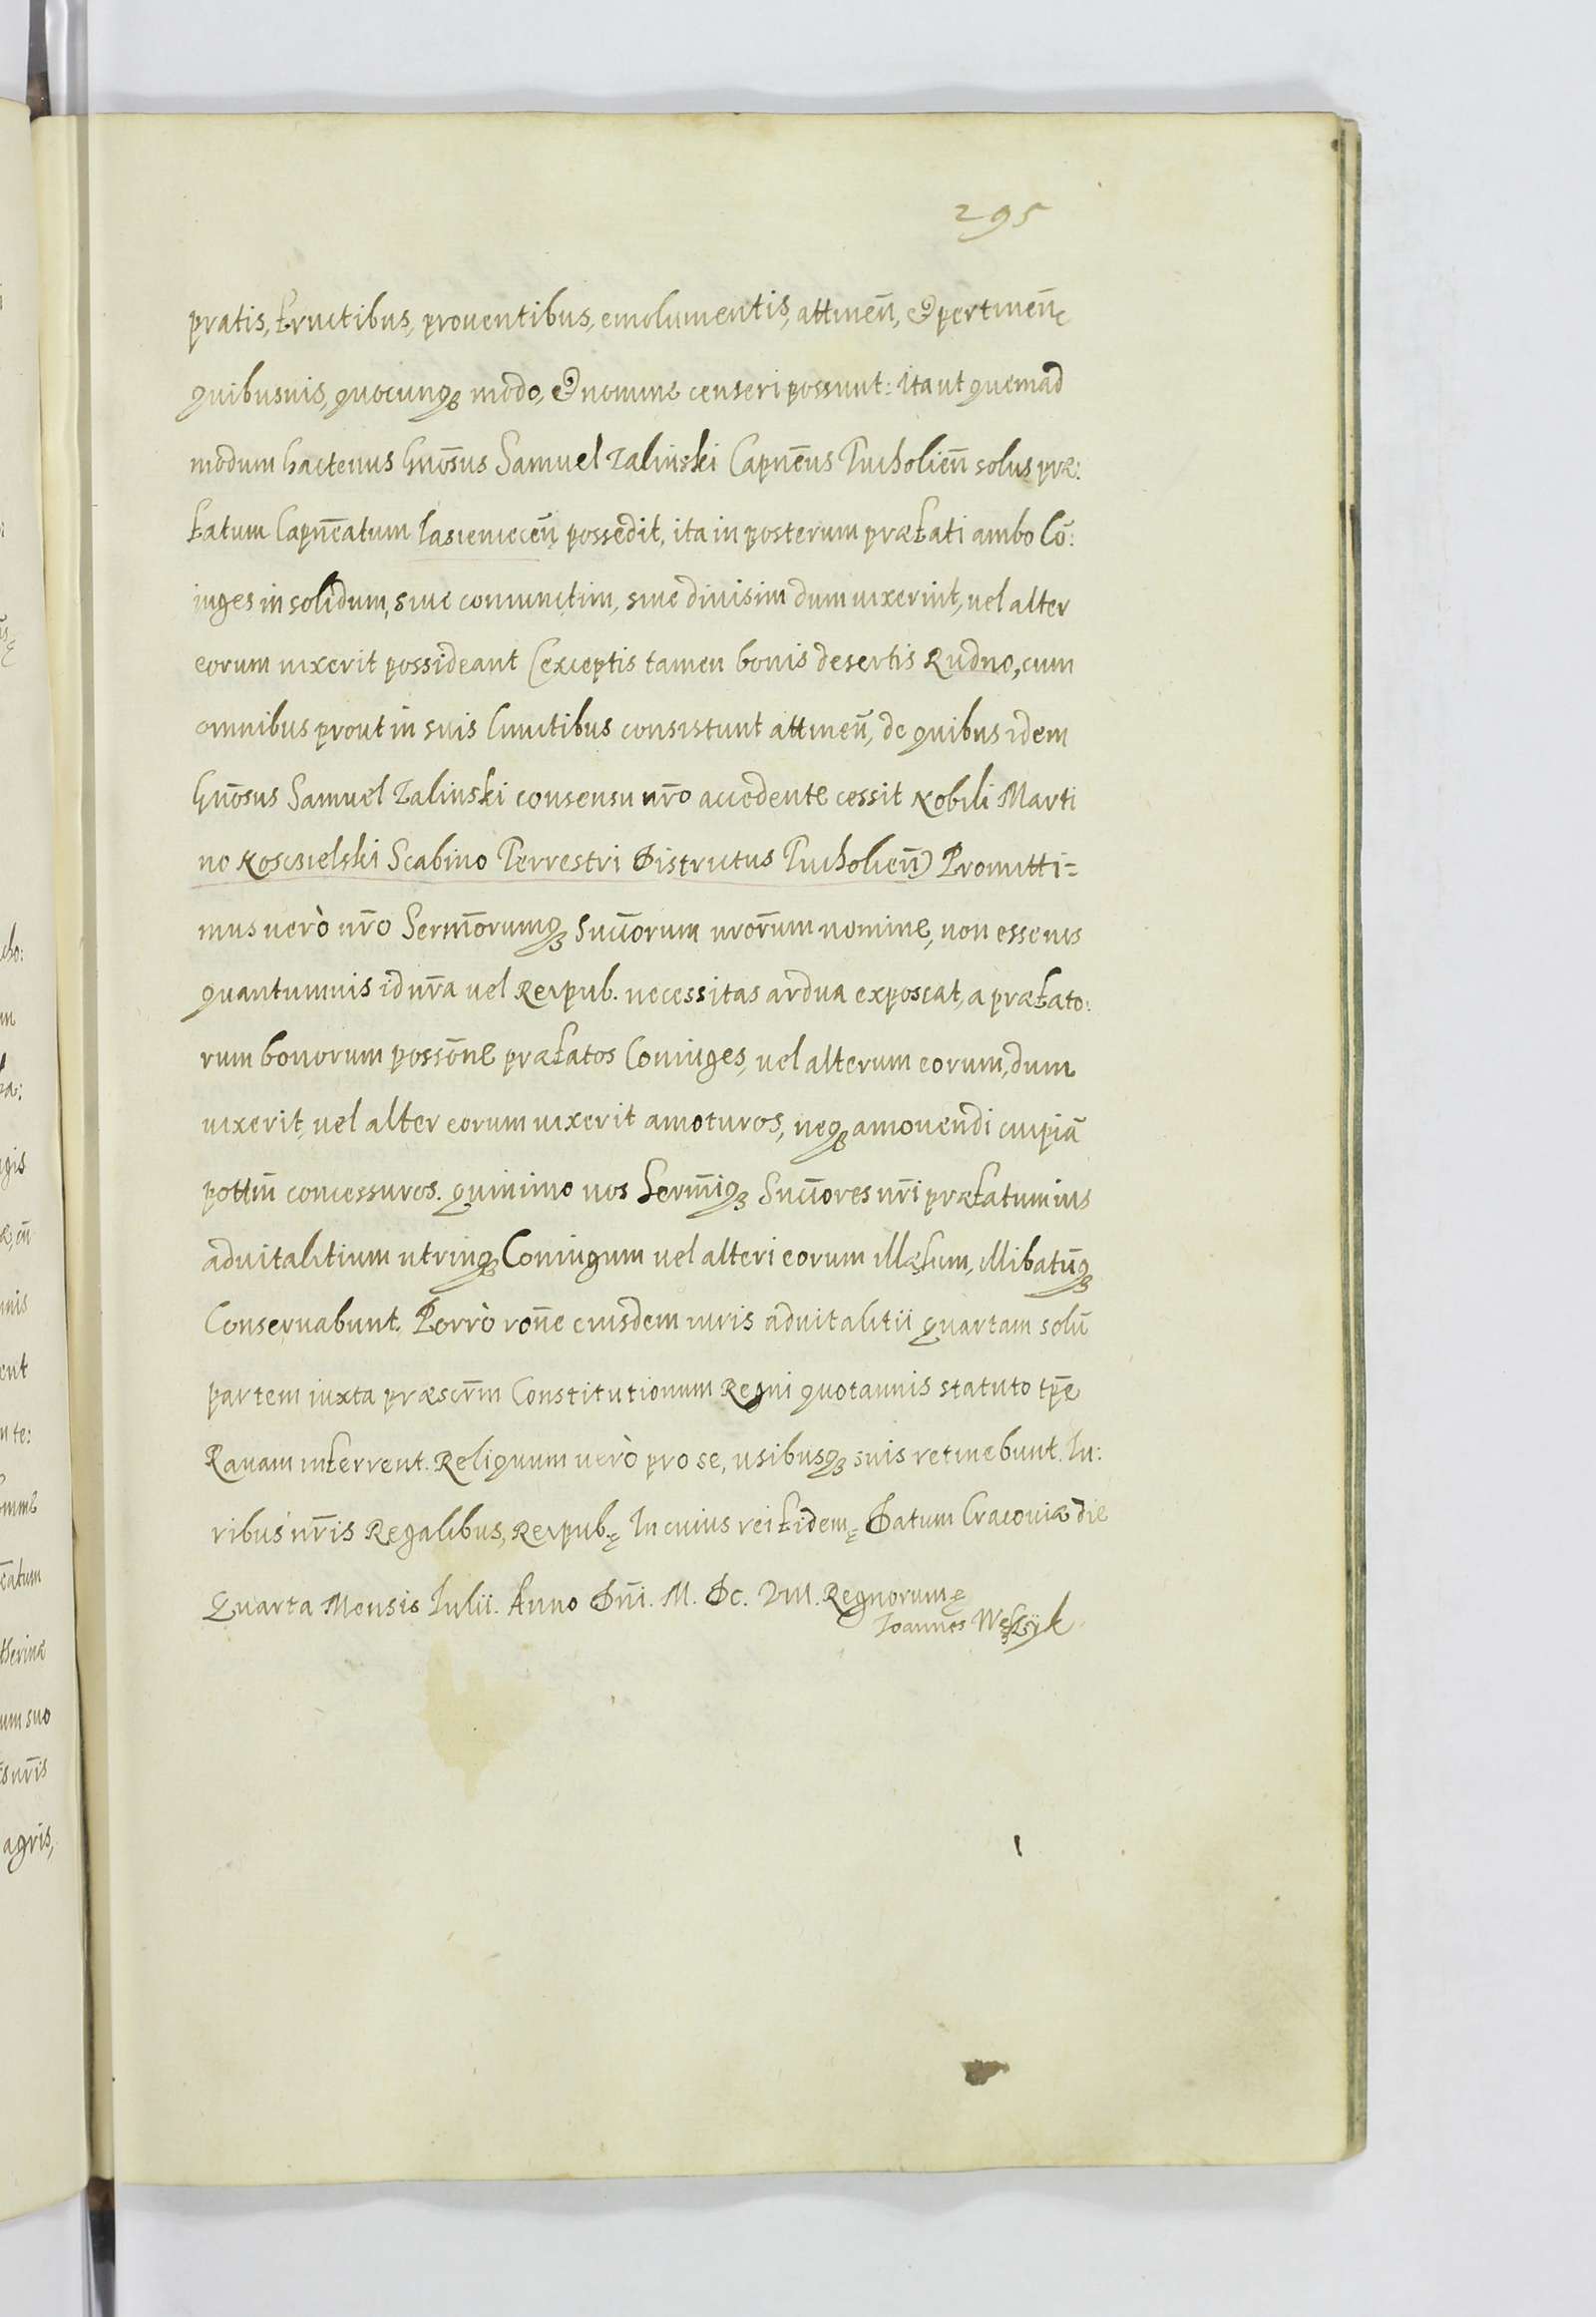 295
pratis, fructibus, prouentibus, emolumentis, attineñ, & pertineñ
quibusuis, quocunqꝫ modo, & nomine censeri possunt: ita ut quemad
modum hactenus Gnõsus Samuel Zalinski Capnẽus Tucholieñ solus præ:
fatum Capnẽatum Iasieniceñ possedit, ita in posterum præfati ambo Cõ:
iuges in solidum, siue coniunctim, siue diuisim dum uixerint, uel alter
eorum uixerit possideant (exceptis tamen bonis desertis Rudno, cum
omnibus prout in suis limitibus consistunt attineñ, de quibus idem
Gnõsus Samuel Zalinski consensu nr̃o accedente cessit Nobili Marti
no Koscielski Scabino Terrestri Districtus Tucholieñ) Promitti=
mus uerò nr̃o Serm̃orumqꝫ Succ̃orum nror̃um nomine, non esse nos
quantumuis id nr̃a uel Reipub. necessitas ardua exposcat, a præfato:
rum bonorum possõne præfatos Coniuges, uel alterum eorum, dum
uixerit, uel alter eorum uixerit amoturos, neqꝫ amouendi cuipiã
pottm̃ concessuros. quinimo nos Serm̃iqꝫ Succ̃ores nr̃i præfatum ius
aduitalitium utriusqꝫ Coniugum uel alteri eorum illæsum, illibatũqꝫ
Conseruabunt. Porrò rõne eiusdem iuris aduitalitii quartam solũ
partem iuxta præscr̃m Constitutionum Regni quotannis statuto tp̃e
Rauam inferrent. Reliquum uerò pro se, usibusqꝫ suis retinebunt. Iu:
ribus nr̃is Regalibus, Reipub. In cuius rei fidem Datum Cracouiæ die
Quarta Mensis Iulii. Anno Dñi. M. DC. VIII. Regnorum
Ioannes Wężyk